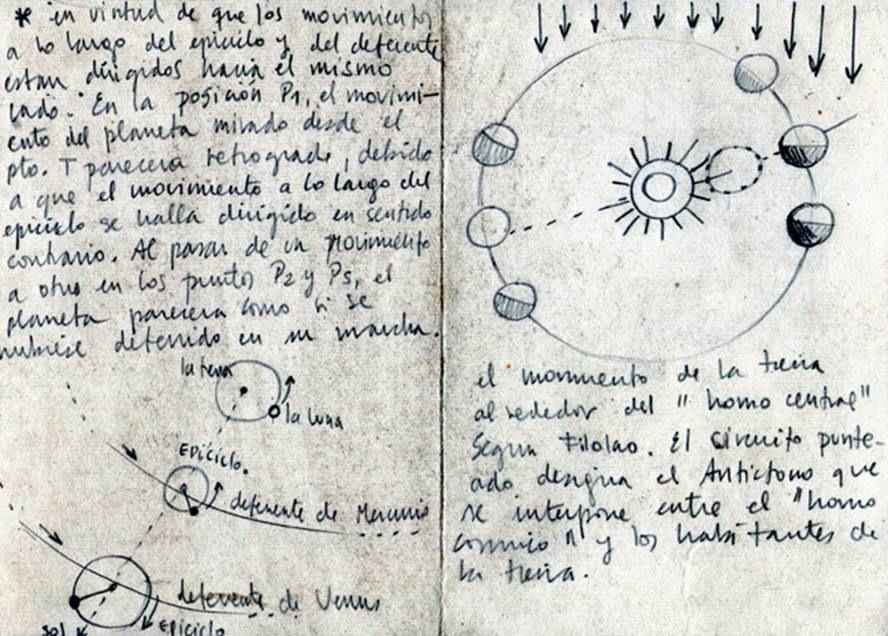 * en virtud de que los movimientos
a lo largo del epiciclo y del deferente
estan dirigidos hacia el mismo
lado. En la posición P1, el movimi-
ento del planeta mirado desde el
pto. T parecera retrogrado, debido
a que el movimiento a lo largo del
epiciclo se halla dirigido en sentido
contrario. Al pasar de un movimiento
a otro en los puntos P2 y P5, el
planeta parecera como si se
hubiese detenido en su marcha.
la tierra
la luna
EPICICLO.
deferente de Mercurio
deferente de Venus
sol
EPICICLO
el movimiento de la tierra
alrededor del "horno central"
Segun Filolao. El circuito punte-
ado designa el Antictono que
se interpone entre el "horno
cosmico" y los habitantes de
la tierra.